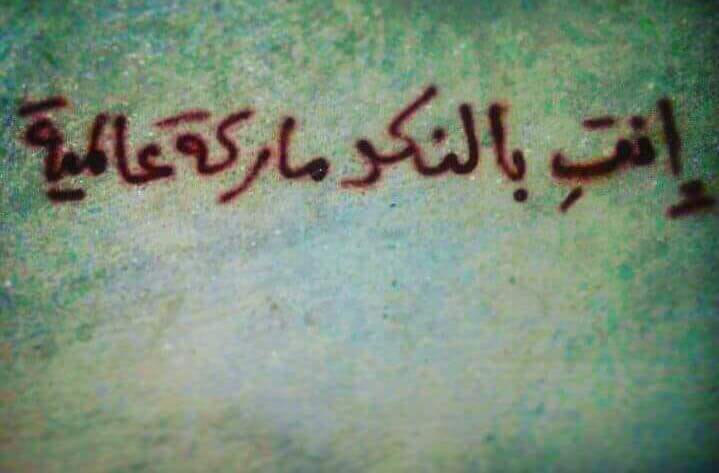 إنتِ بالنكد ماركة عالمية